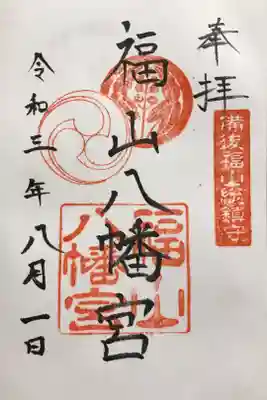 奉拝
備後福山総鎮守
福山八幡宮
福山八幡宮
令和三年八月一日